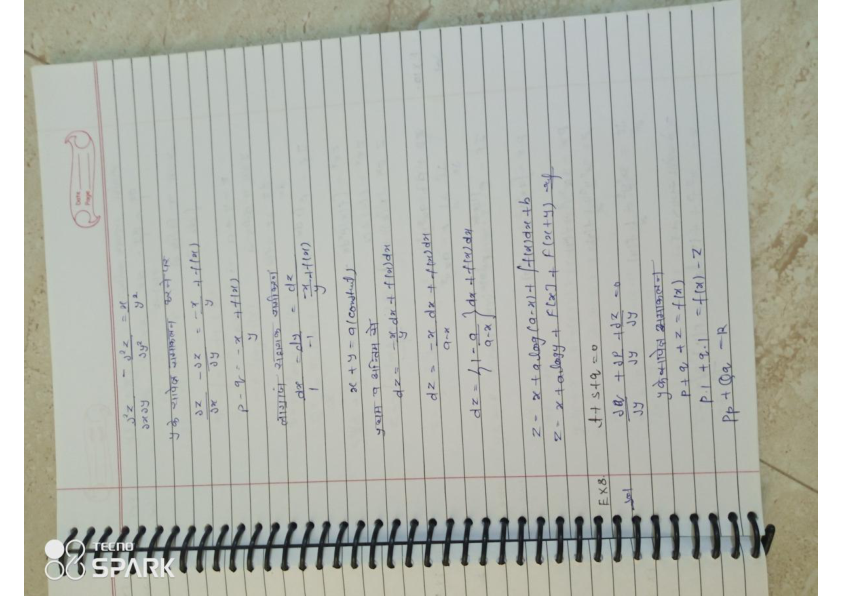 Date
Page
∂²z/∂x∂y - ∂²z/∂y² = x/y²
y के सापेक्ष समाकलन करने पर
∂z/∂x - ∂z/∂y = -x/y + f(x)
p - q = -x/y + f(x)
लग्रांज सहायक समीकरण
dx/1 = dy/-1 = dz/(-x/y + f(x))
x + y = a (constant)
प्रथम व अन्तिम से
dz = -x/y dx + f(x)dx
dz = -x/(a-x) dx + f(x)dx
dz = {1 - a/(a-x)} dx + f(x)dx
z = x + a log(a-x) + ∫f(x)dx + b
z = x + a logy + F(x) + F(x+y)
EX 8. t + s + q = 0
∂q/∂y + ∂p/∂y + ∂z/∂y = 0
y के सापेक्ष समाकलन
p + q + z = f(x)
p.1 + q.1 = f(x) - z
Pp + Qq = R
TECNO
SPARK